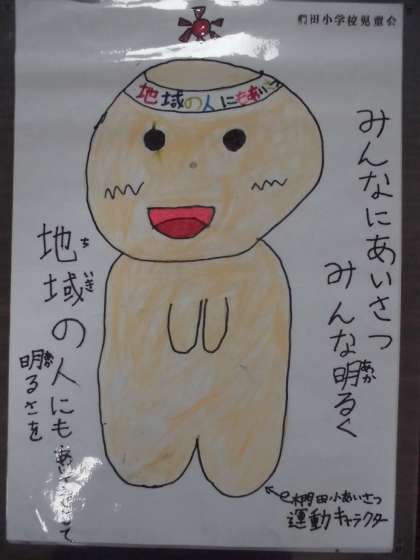 椚田小学校児童会
地域の人にもあいさつ
みんなにあいさつ
みんな明るく
地域の人にもあいさつして
明るさを
椚田小あいさつ
運動キャラクター